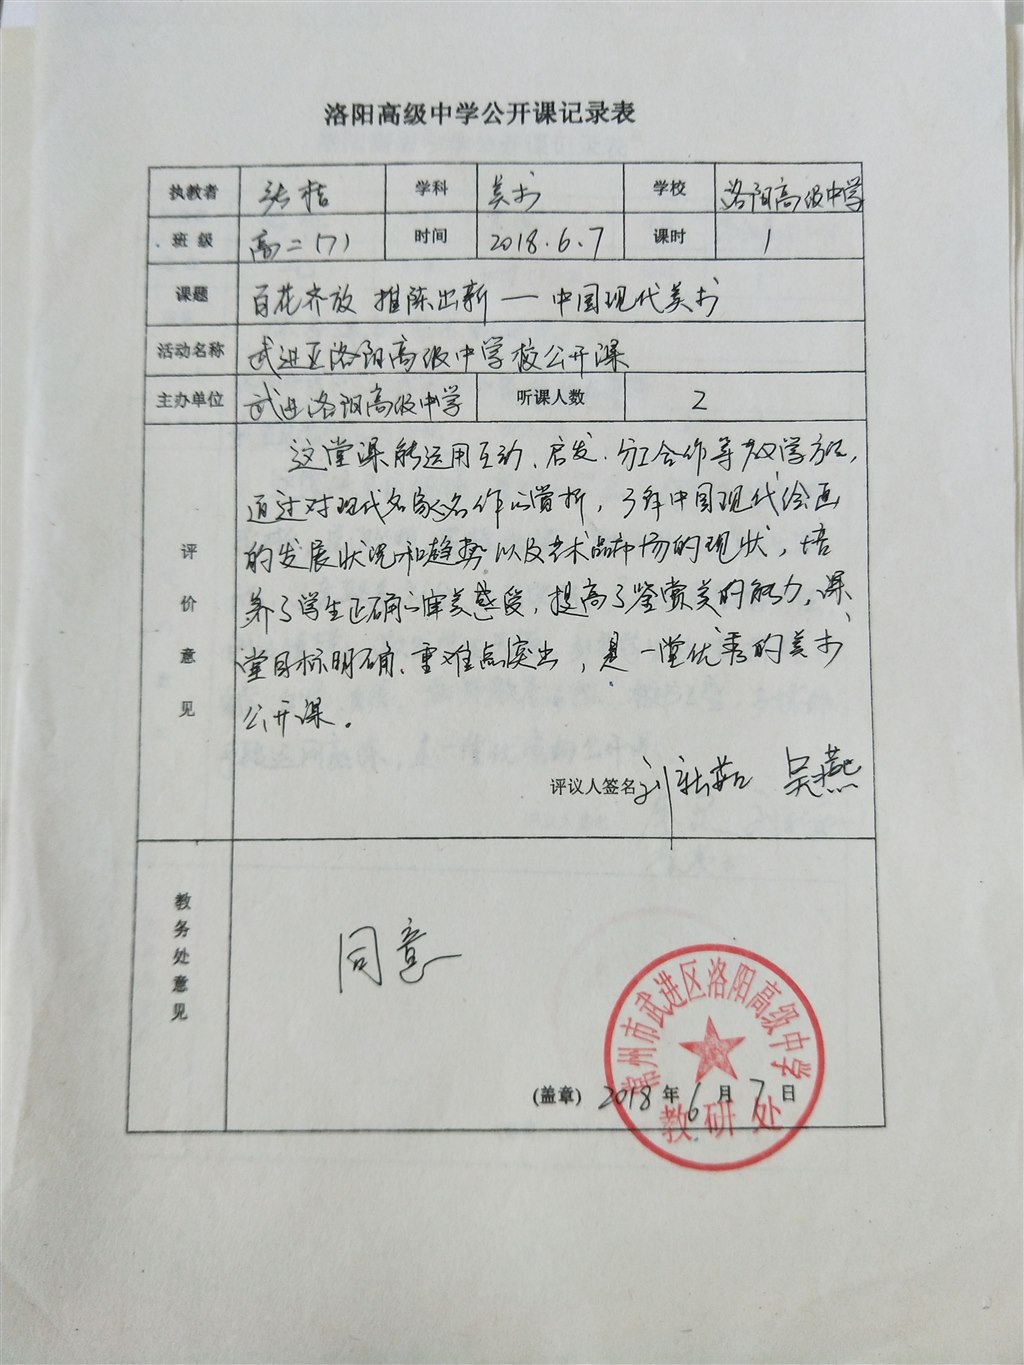 洛阳高级中学公开课记录表
执教者 张 学科 美术 学校 洛阳高级中学
班级 高二(7) 时间 2018.6.7 课时 1
课题 百花齐放 推陈出新 — 中国现代美术
活动名称 武进区洛阳高级中学校公开课
主办单位 武进洛阳高级中学 听课人数 2
评价意见
这堂课能运用互动、启发、分工合作等教学方法,
通过对现代名家名作的赏析,了解中国现代绘画
的发展状况和趋势以及艺术品市场的现状,培
养了学生正确的审美感受,提高了鉴赏美的能力,课
堂目标明确、重难点突出,是一堂优秀的美术
公开课。
评议人签名 刘 吴燕
教务处意见
同意
常州市武进区洛阳高级中学
(盖章) 2018年6月7日
教研处